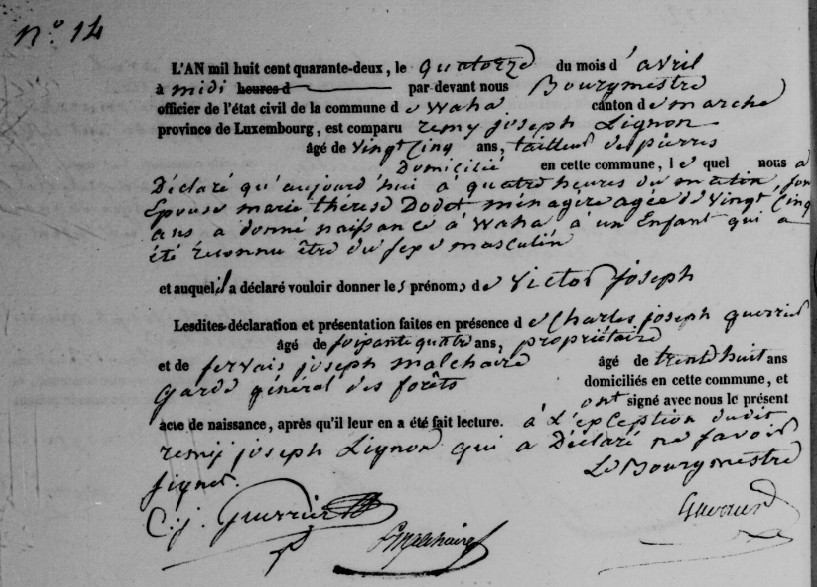 N.° 14
L'AN mil huit cent quarante-deux, le quatorze du mois d'avril
à midi heures d par devant nous Bourgmestre
officier de l'état civil de la commune de Waha canton de marche
province de Luxembourg, est comparu remy joseph Lignon
âgé de vingt Cinq ans, tailleur de pierres
Domicilié en cette commune, lequel nous a
Déclaré qu'aujourd'hui à quatre heures du matin, son
Epouse marie thérèse Dodot ménagère agée de Vingt Cinq
ans a donné naissance à Waha à un Enfant qui a
été reconnu être du sexe masculin
et auquel il a déclaré vouloir donner les prénoms de Victor joseph
Lesdites déclaration et présentation faites en présence de Charles joseph guerrier
âgé de soixante quatre ans, propriétaire
et de servais joseph malchaire âgé de trente huit ans
garde général des forêts domiciliés en cette commune, et
ont signé avec nous le présent
acte de naissance, après qu'il leur en a été fait lecture. à L'exception dudit
remy joseph Lignon qui a Déclaré ne savoir
signer. Le Bourgmestre
C. j. Guerrier
Malchaire